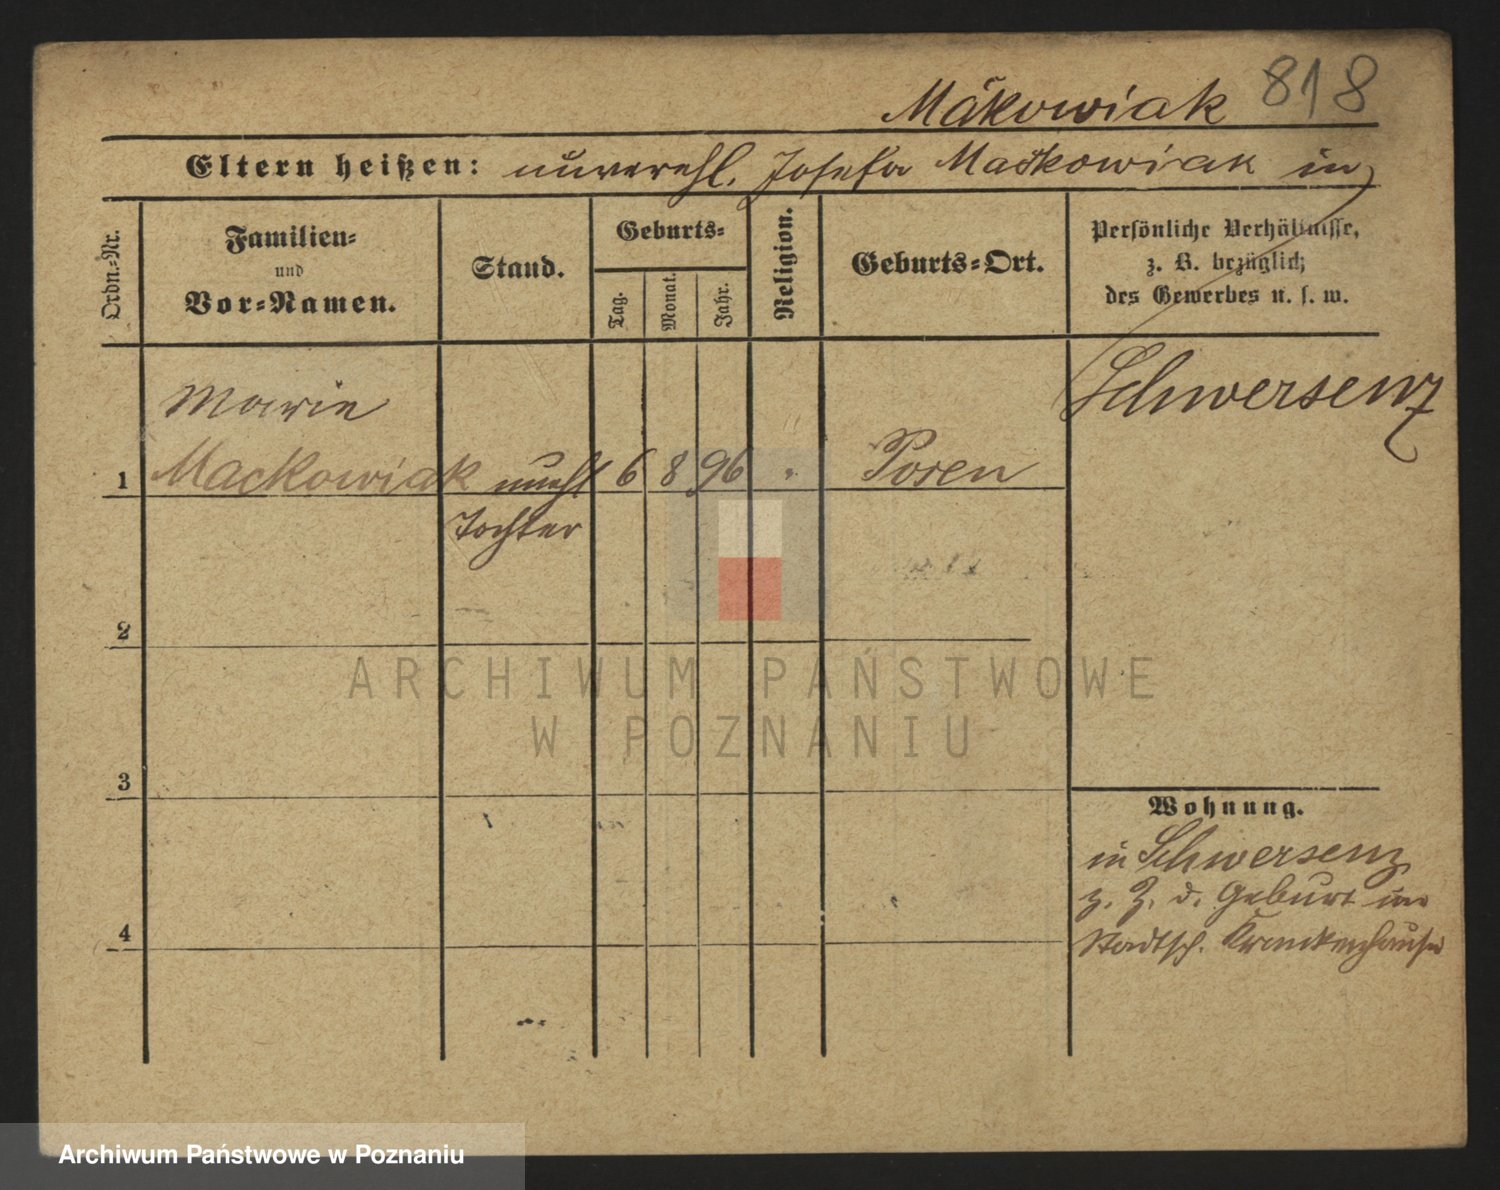 Măkowiak 818
Eltern heißen: unverehl. Josefa Maćkowiak in
Ordn.-Nr.
Familien-
und
Vor-Namen.
Stand.
Geburts-
Tag.
Monat.
Jahr.
Religion.
Geburts-Ort.
Persönliche Verhältnisse,
z. B. bezüglich
des Gewerbes u. s. w.
Schwersenz
Marie
1 Mackowiak unehl 6 8 96 Posen
Tochter
2
3
4
Wohnung.
in Schwersenz
z. Z. d. Geburt im
Stadtsch. Krankenhause
ARCHIWUM PAŃSTWOWE
W POZNANIU
Archiwum Państwowe w Poznaniu